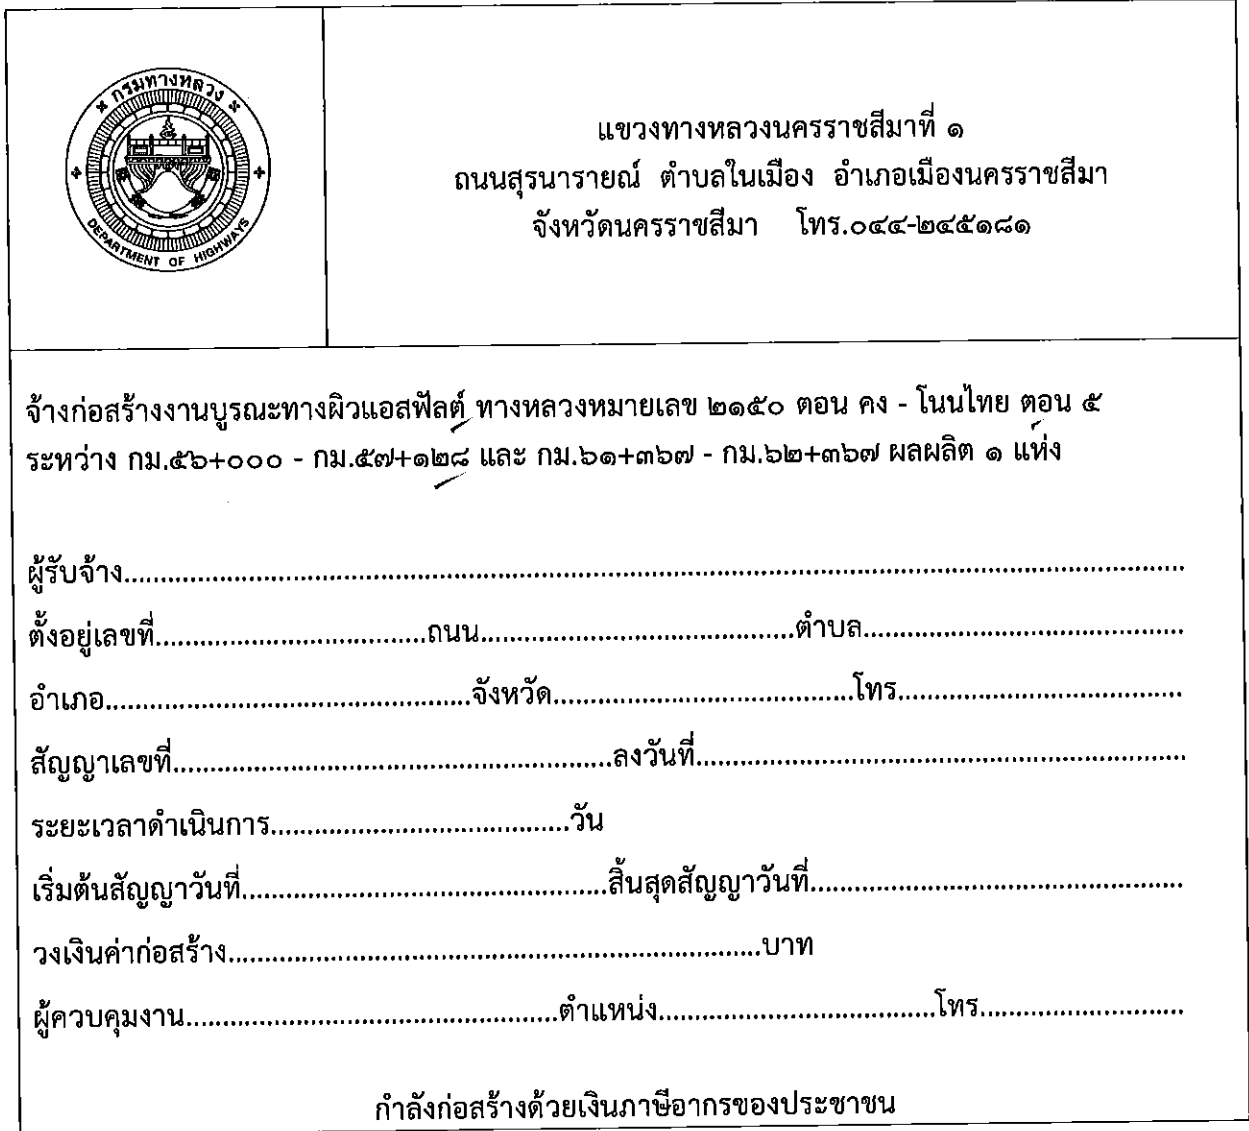 กรมทางหลวง
DEPARTMENT OF HIGHWAYS
แขวงทางหลวงนครราชสีมาที่ ๑
ถนนสุรนารายณ์ ตำบลในเมือง อำเภอเมืองนครราชสีมา
จังหวัดนครราชสีมา โทร.๐๔๔-๒๔๕๑๘๑
จ้างก่อสร้างงานบูรณะทางผิวแอสฟัลต์ ทางหลวงหมายเลข ๒๑๕๐ ตอน คง - โนนไทย ตอน ๕
ระหว่าง กม.๕๖+๐๐๐ - กม.๕๗+๑๒๘ และ กม.๖๑+๓๖๗ - กม.๖๒+๓๖๗ ผลผลิต ๑ แห่ง
ผู้รับจ้าง....................
ตั้งอยู่เลขที่....................ถนน....................ตำบล....................
อำเภอ....................จังหวัด....................โทร....................
สัญญาเลขที่....................ลงวันที่....................
ระยะเวลาดำเนินการ....................วัน
เริ่มต้นสัญญาวันที่....................สิ้นสุดสัญญาวันที่....................
วงเงินค่าก่อสร้าง....................บาท
ผู้ควบคุมงาน....................ตำแหน่ง....................โทร....................
กำลังก่อสร้างด้วยเงินภาษีอากรของประชาชน